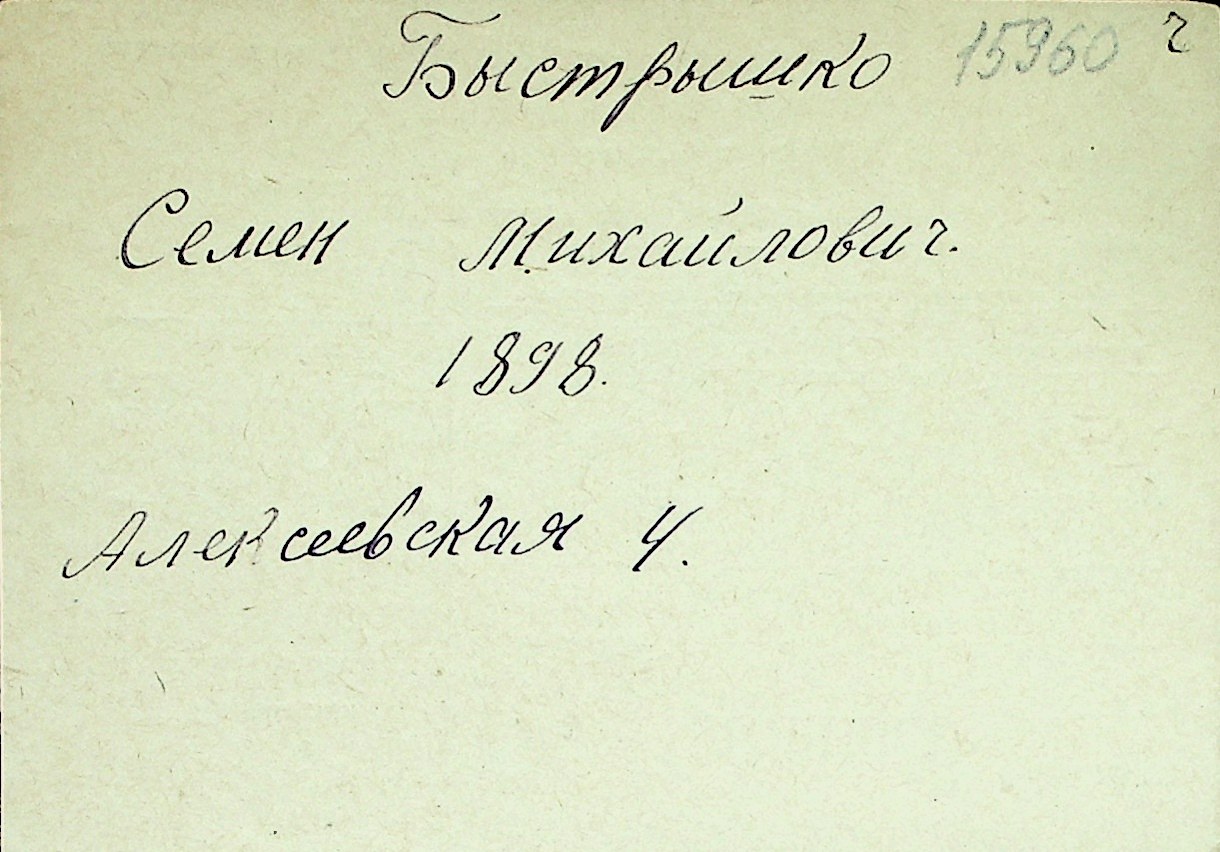 Быстрышко 15960 ч
Семен Михайлович.
1898.
Алексеевская 4.